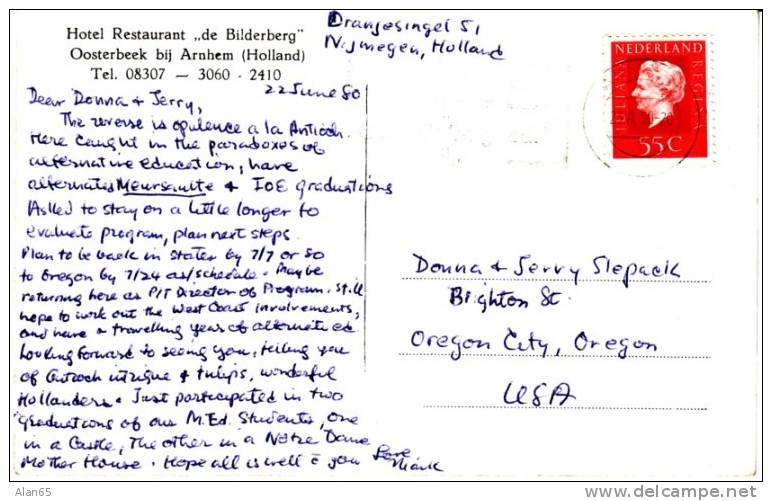 Hotel Restaurant „de Bilderberg"
Oosterbeek bij Arnhem (Holland)
Tel. 08307 — 3060 - 2410
Oranjesingel 51
Nijmegen, Holland
22 June 80
Dear Donna & Jerry,
The reverse is opulence a la Antioch.
Here caught in the paradoxes of
alternative education, have
alternated & IOE graduations
Asked to stay on a little longer to
evaluate program, plan next steps.
Plan to be back in States by 7/7 or so
to Oregon by 7/24 as/schedule. Maybe
returning here as P/T Director of Program. Still
hope to work out the West Coast involvements,
and have a travelling year of alternate ed
Looking forward to seeing you, telling you
of Antioch intrigue & tulips, wonderful
Hollanders. Just participated in two
graduations of our M.Ed. Students, one
in a Castle, The other in a Notre Dame
Mother House. Hope all is well c̄ you Love
Mark
NEDERLAND
JULIANA REGINA
55c
Donna & Jerry Slepack
Brighton St.
Oregon City, Oregon
USA
Alan65
http://alan65.delcampe.net